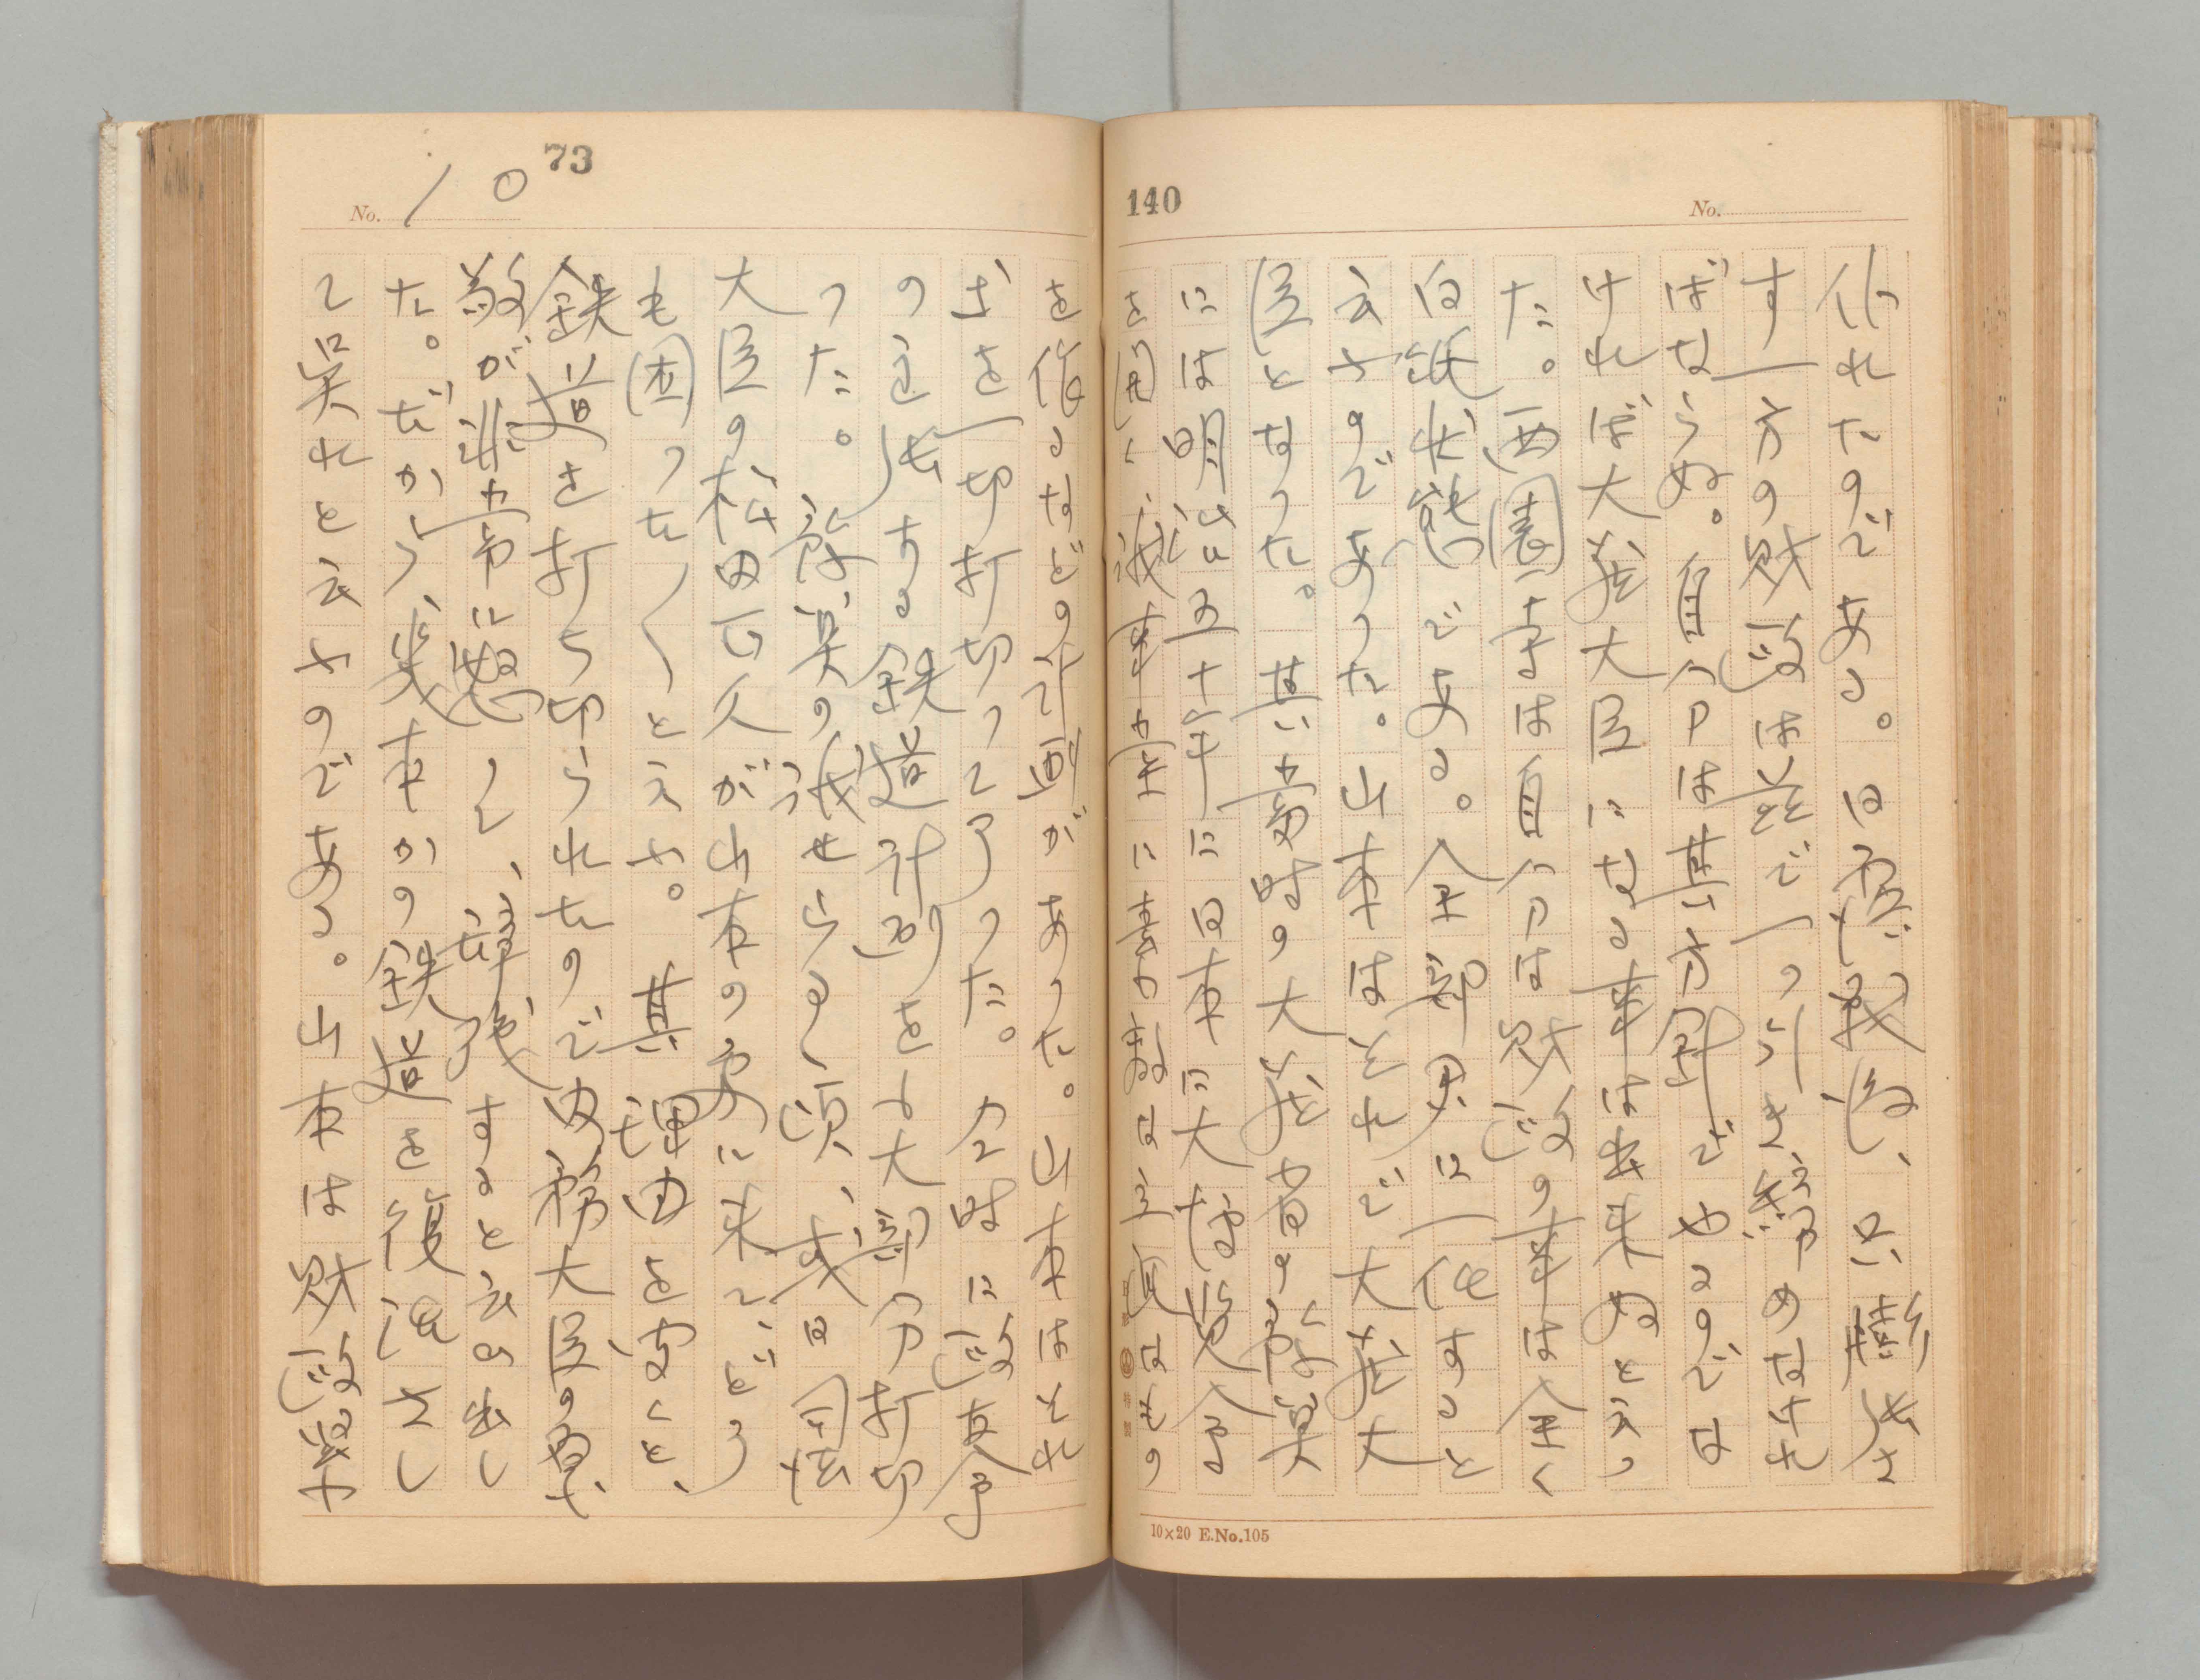 140
No.
仆れたのである。日露戦後、只
す一方の財政は茲で一つ引き締めなけれ
ばならぬ。自分は其方針でやるのでな
ければ大蔵大臣になる事は出来ぬと云つ
た。西園寺は自分は財政の事は全く
白紙状態である。全部君に一任すると
云ふのであつた。山本はそれで大蔵大
臣となつた。其当時の大蔵省の予算
には明治五十年に日本に大博覧会
を開く、議事堂
10×20 E.No.105
73
No. 10
を作るなどの計画があつた。山本はそれ
を一切打切つて了つた。同時に政友会
の主張する鉄道計画をも大部分打切
つた。予算の議せらるゝ頃、或日司法
大臣の松田正久が山本の家に来て、どう
も困つた〱と云ふ。其理由を聞くと、
鉄道を打ち切られたので内務大臣の原
敬が非常に怒つて、辞職すると云ひ出し
た。だから、幾本かの鉄道を復活さし
て呉れと云ふのである。山本は財政